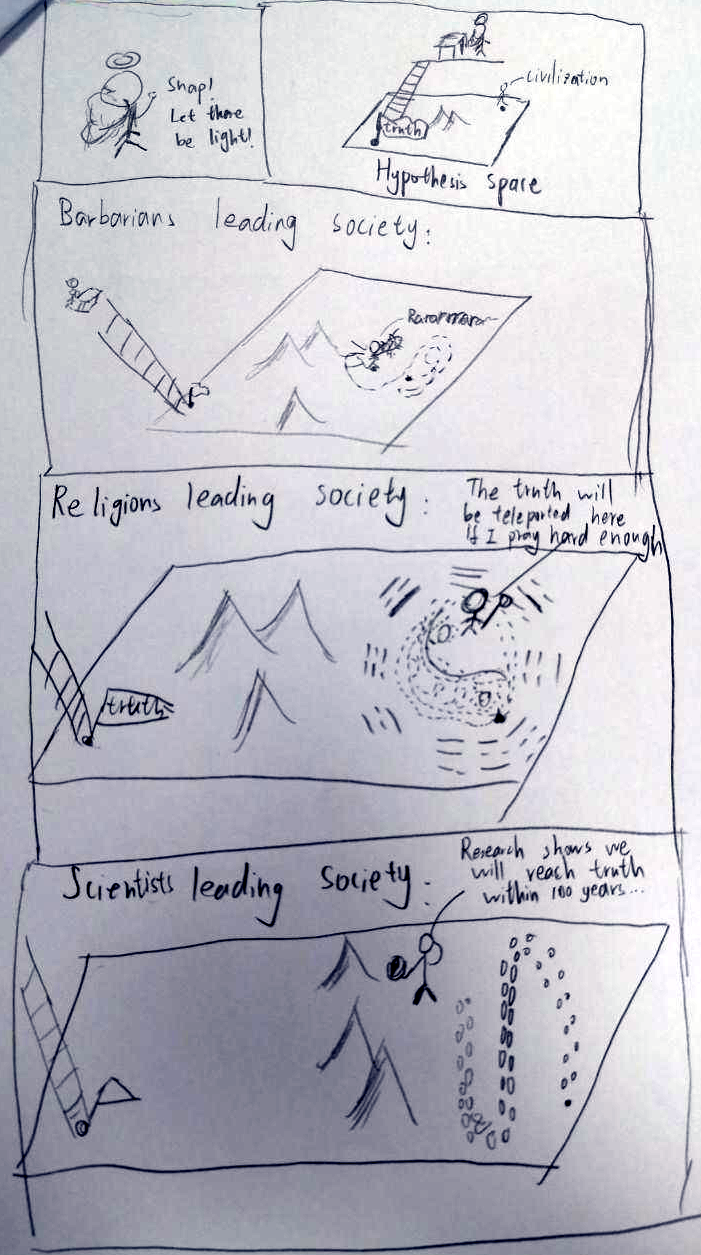 Snap!
Let there
be light!
civilization
truth
Hypothesis space
Barbarians leading society:
Religions leading society:
The truth will
be teleported here
If I pray hard enough
truth
Scientists leading society:
Research shows we
will reach truth
within 100 years...